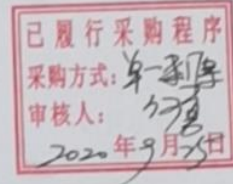 已履行采购程序
采购方式：单一来源
审核人：
2020年9月25日